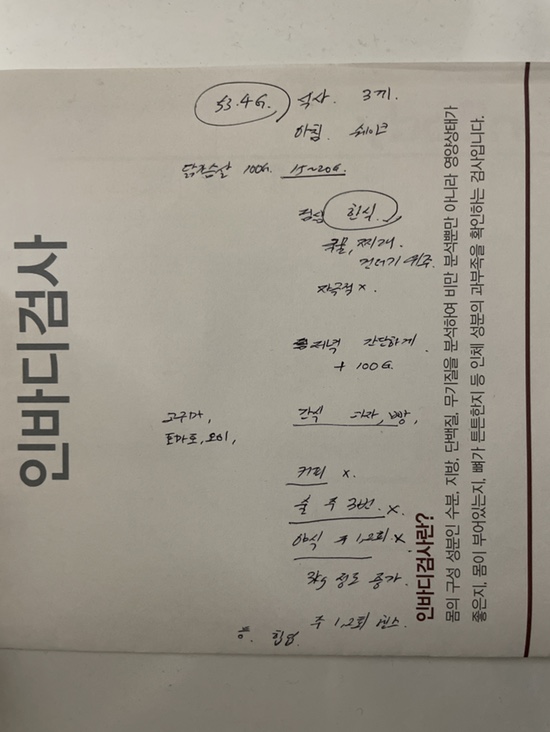 53.4G. 식사. 3끼.
아침 쉐이크
닭가슴살 100G. 15~20G.
점심 한식.
국물, 찌개.
건더기 위주.
자극적 x.
저녁 간단하게
+ 100G.
고구마, 간식 과자, 빵,
토마토, 오이,
커피 x.
술 주 3번. x.
야식 주 1,2회 x
3kg 정도 증가
주 1,2회 댄스.
인바디검사
인바디검사란?
몸의 구성 성분인 수분, 지방, 단백질, 무기질을 분석하여 비만 분석뿐만 아니라 영양상태가
좋은지, 몸이 부어있는지, 뼈가 튼튼한지 등 인체 성분의 과부족을 확인하는 검사입니다.